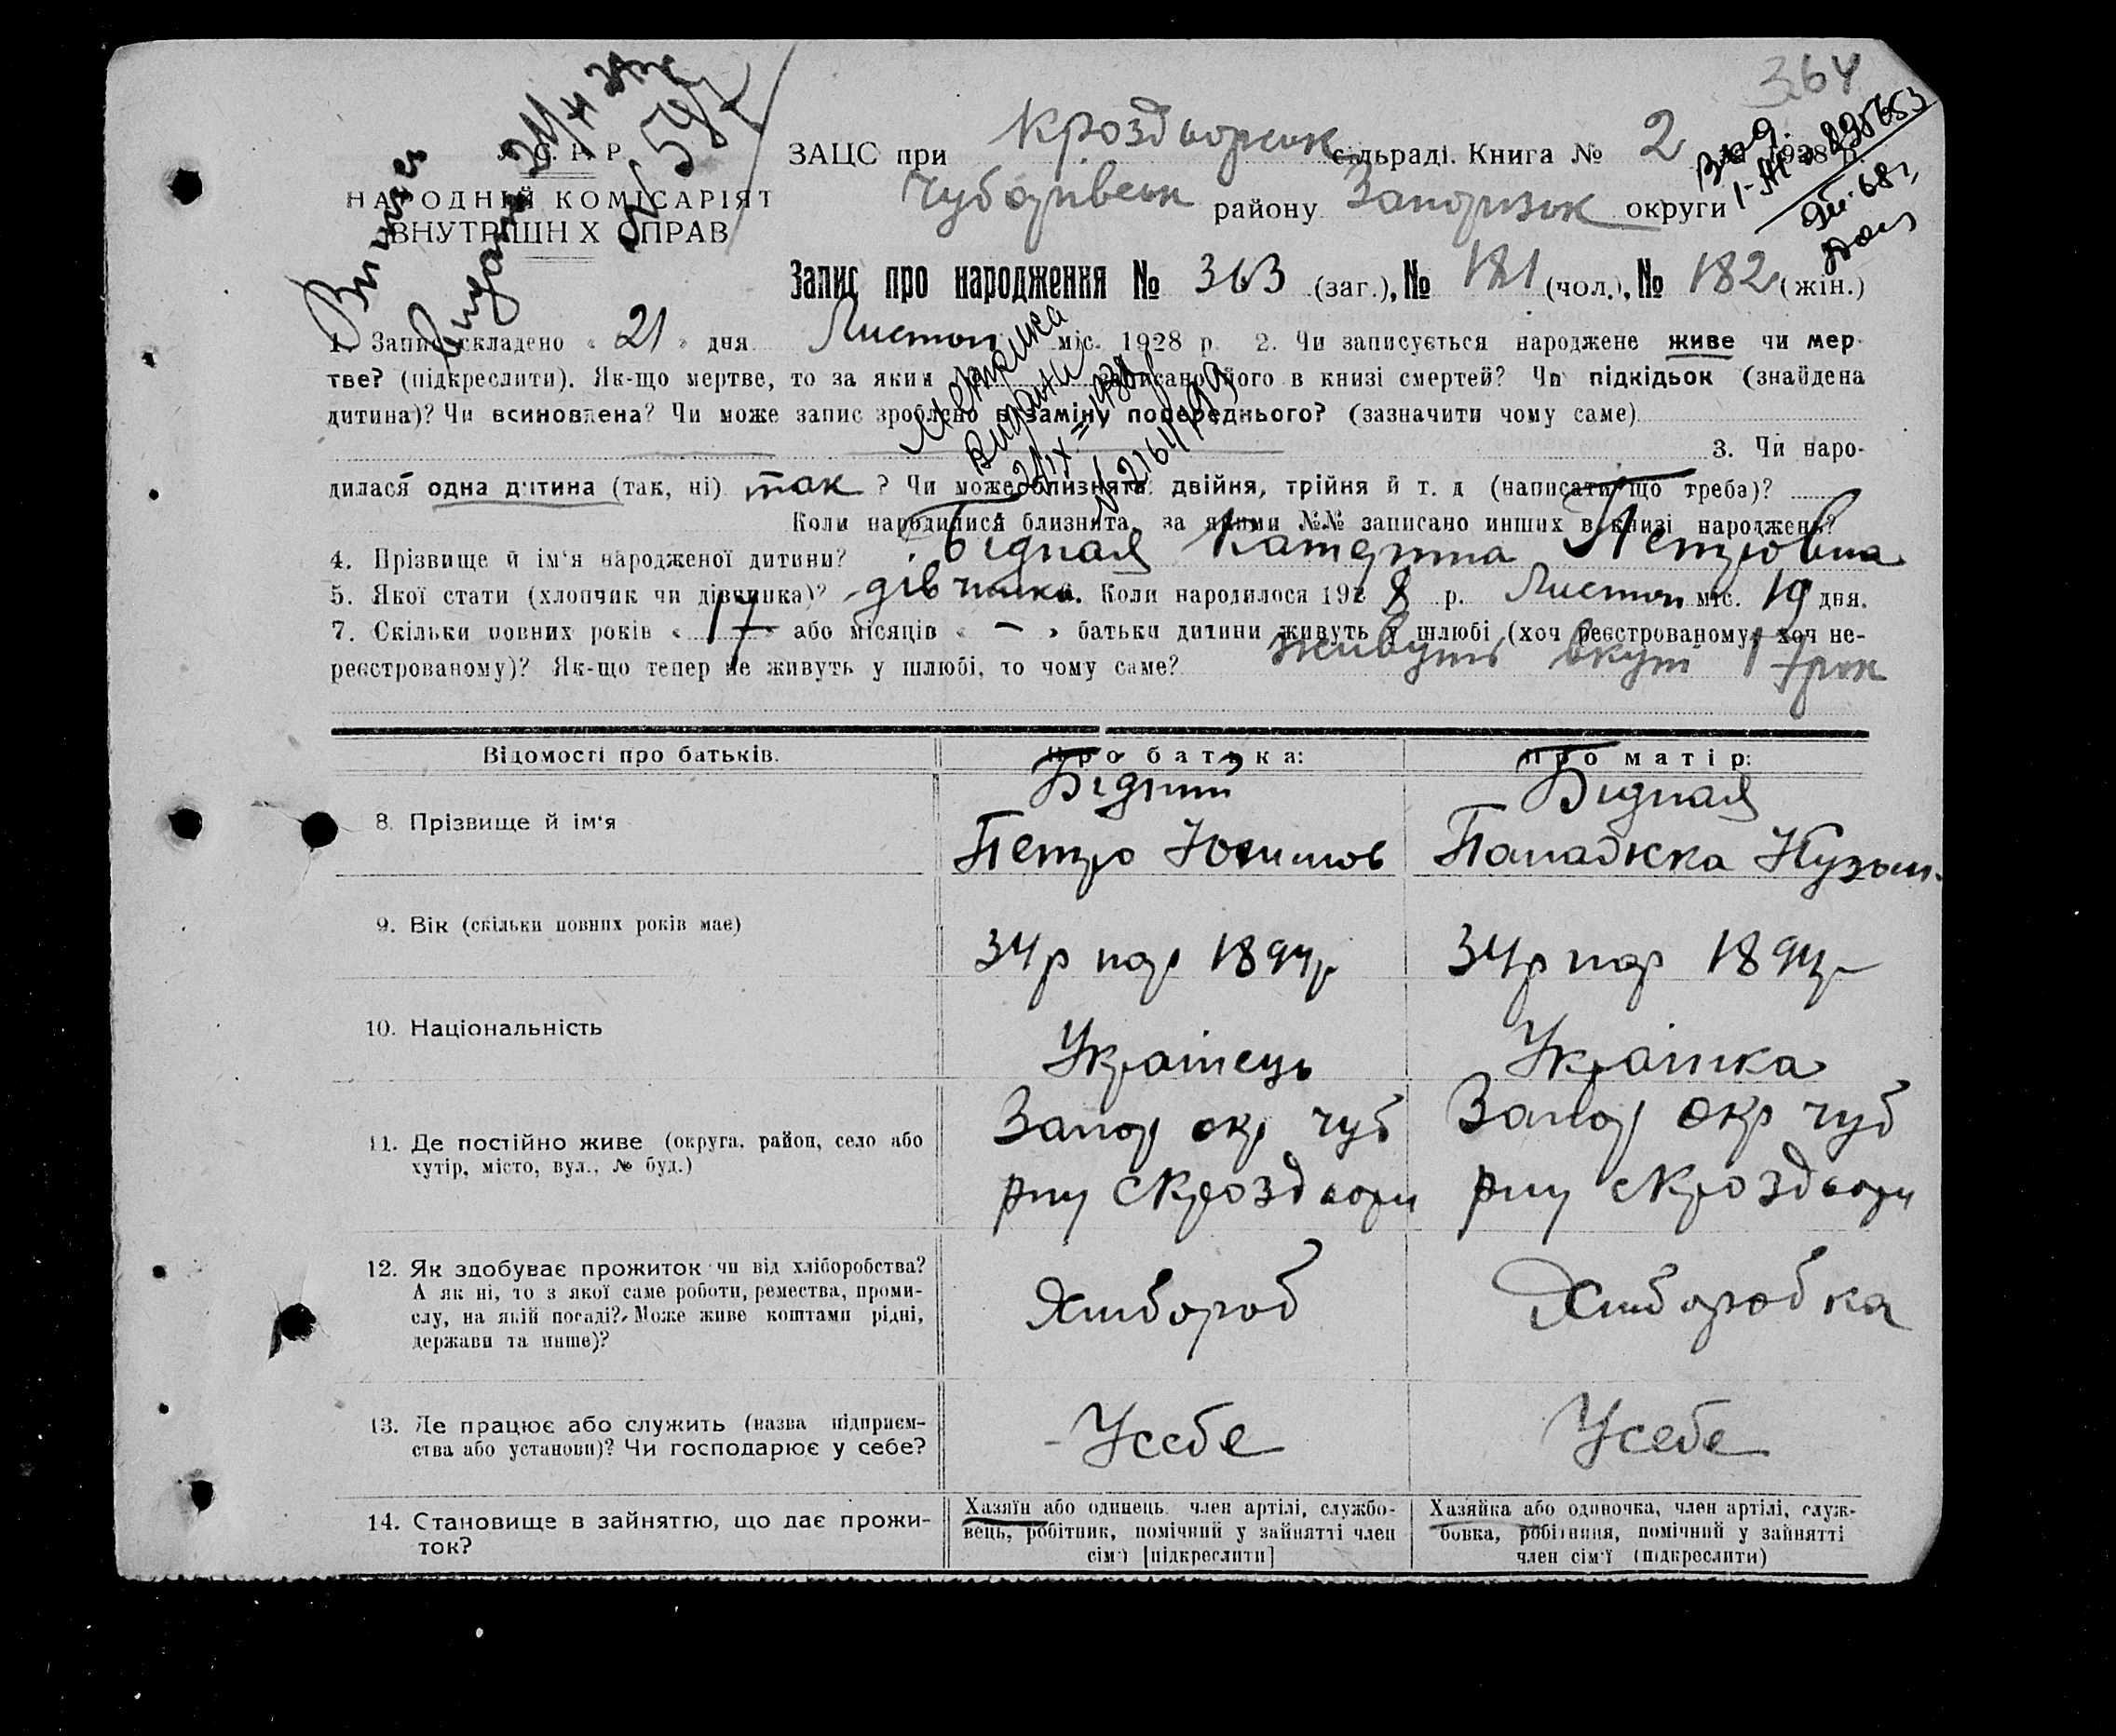 364
У.С.Р.Р.
НАРОДНІЙ КОМІСАРІЯТ
ВНУТРІШНІХ СПРАВ
ЗАЦС при Кроздворик сільраді. Книга № 2 на 1928 р.
Чубарівськ району Запоризьк округи
Запис про народження № 363 (заг.), № 181 (чол.), № 182 (жін.)
1. Запис складено « 21 » дня Листоп міс. 1928 р. 2. Чи записується народжене живе чи мер-
тве? (підкреслити). Як-що мертве, то за яким записано його в книзі смертей? Чи підкідьок (знайдена
дитина)? Чи всиновлена? Чи може запис зроблено в заміну попереднього? (зазначити чому саме)
3. Чи наро-
дилася одна дитина (так, ні) так ? Чи може близнята: двійня, трійня й т. д. (написати що треба)?
Коли народилися близнята, за якими №№ записано инших в книзі народжень?
4. Прізвище й ім'я народженої дитини? Бідная Катерина Петровна
5. Якої стати (хлопчик чи дівчинка)? дівчинка. Коли народилося 1928 р. Листоп міс. 19 дня.
7. Скільки повних років « 17 » або місяців « — » батьки дитини живуть у шлюбі (хоч реєстрованому, хоч не-
реєстрованому)? Як-що тепер не живуть у шлюбі, то чому саме? живуть вкупі 17 рок
Метрика
видана
21/IX=1939
№ 2164
Виписка
Видана 21/4
№ 587
Відомості про батьків. Про батька: Про матір:
8. Прізвище й ім'я Бідний Бидная
Петро Юхимов Панадюка Кузьм.
9. Вік (скільки повних років має) 34 р нар 1894 р 34 р нар 1894 р
10. Національність Українець Українка
11. Де постійно живе (округа, район, село або Запор окр чуб Запор окр чуб
хутір, місто, вул., № буд.) рну с Кроздвори рну с Кроздвори
12. Як здобуває прожиток чи від хліборобства? Хлібороб Хліборобка
А як ні, то з якої саме роботи, ремества, проми-
слу, на якій посаді? Може живе коштами рідні,
держави та инше)?
13. Де працює або служить (назва підприєм- Усебе Усебе
ства або установи)? Чи господарює у себе?
14. Становище в зайняттю, що дає прожи- Хазяїн або одинець, член артілі, службо- Хазяйка або одиночка, член артілі, служ-
ток? вець, робітник, помічний у зайнятті член бовка, робітниця, помічний у зайнятті
сім'ї [підкреслити] член сім'ї (підкреслити)